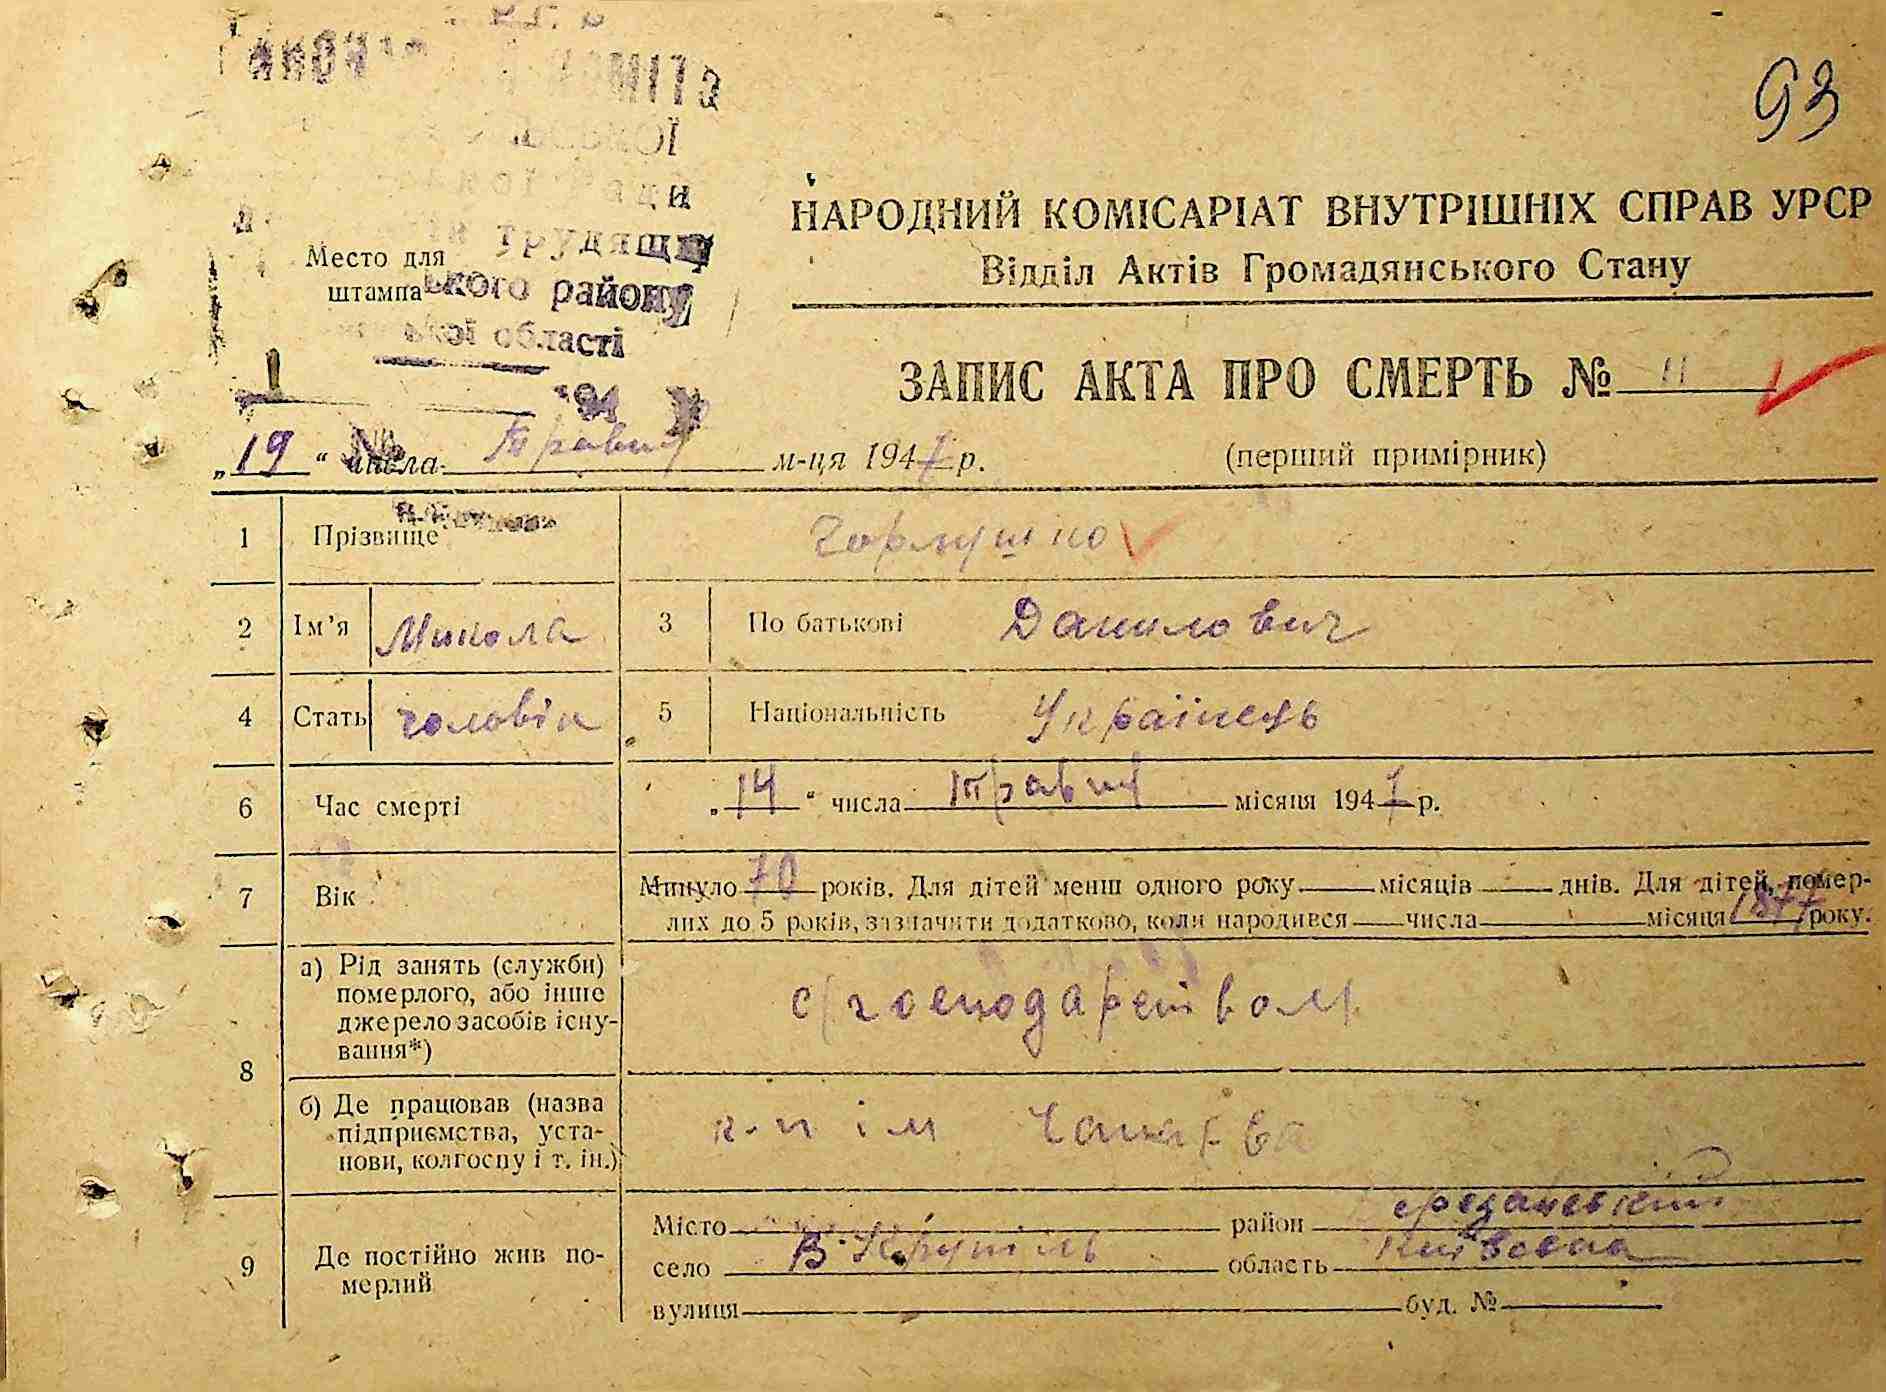 93
трудящ
ького району
кої області
Место для
штампа
194
НАРОДНИЙ КОМІСАРІАТ ВНУТРІШНІХ СПРАВ УРСР
Відділ Актів Громадянського Стану
ЗАПИС АКТА ПРО СМЕРТЬ № 11
„19“ числа Травня м-ця 1947 р.
(перший примірник)
1 Прізвище
2 Ім’я Микола 3 По батькові Данилович
4 Стать чоловік 5 Національність Українець
6 Час смерті „14“ числа Травня місяця 1947 р.
7 Вік Минуло 70 років. Для дітей менш одного року місяців днів. Для дітей, помер-
лих до 5 років, зазначити додатково, коли народився числа місяця 1877 року.
8 а) Рід занять (служби)
померлого, або інше
джерело засобів існу-
вання*)
с/господарством
б) Де працював (назва
підприємства, уста-
нови, колгоспу і т. ін.)
к-п ім Чапаєва
9 Де постійно жив по-
мерлий
Місто район
село В. Крупіль область Київська
вулиця буд. №